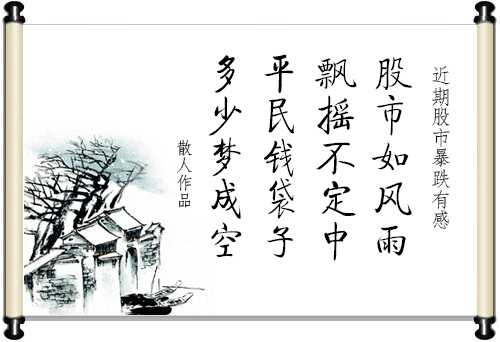 近期股市暴跌有感
股市如风雨
飘摇不定中
平民钱袋子
多少梦成空
散人作品